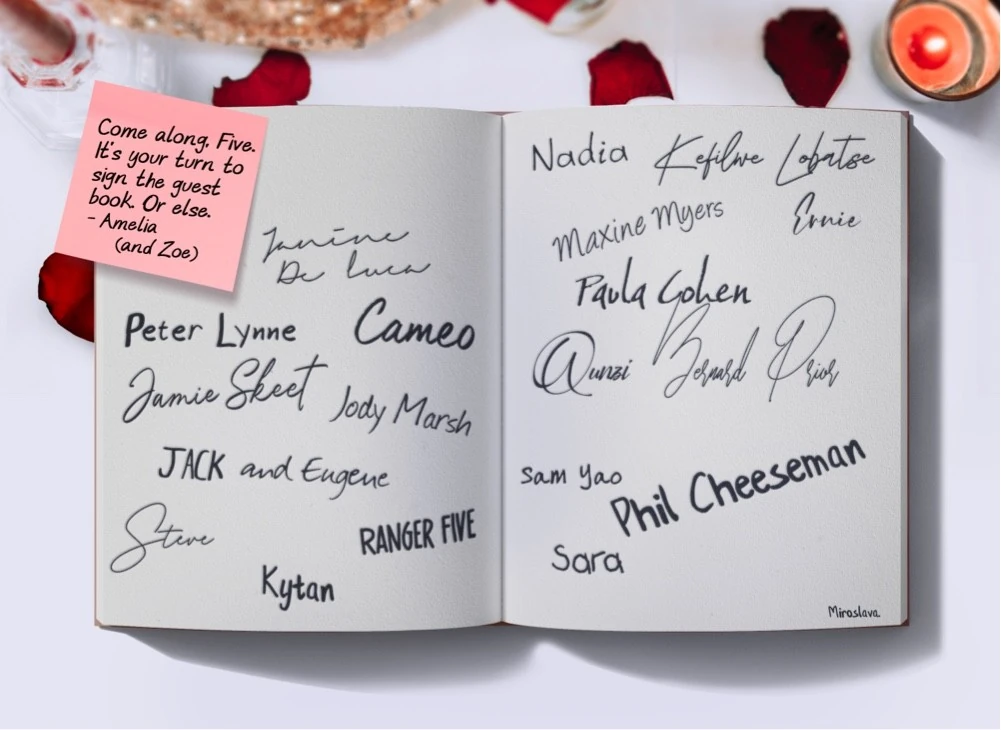 Come along, Five.
It's your turn to
sign the guest
book. Or else.
- Amelia
(and Zoe)
Janine
De Luca
Peter Lynne
Cameo
Jamie Skeet
Jody Marsh
JACK and Eugene
Steve
RANGER FIVE
Kytan
Nadia
Kefilwe Lobatse
Maxine Myers
Ernie
Paula Cohen
Qunzi
Bernard Prior
Sam Yao
Phil Cheeseman
Sara
Miroslava